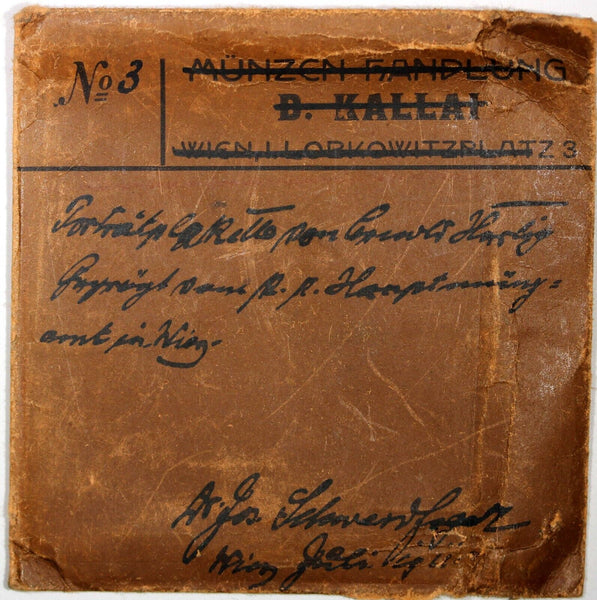 № 3
MÜNZEN HANDLUNG
B. KALLAI
WIEN, I. LOBKOWITZPLATZ 3
Porträtplakette von Arnold Hartig
Geprägt vom k. k. Hauptmünz=
amt in Wien.
Dr. Jos. Schwerdfeger
Wien